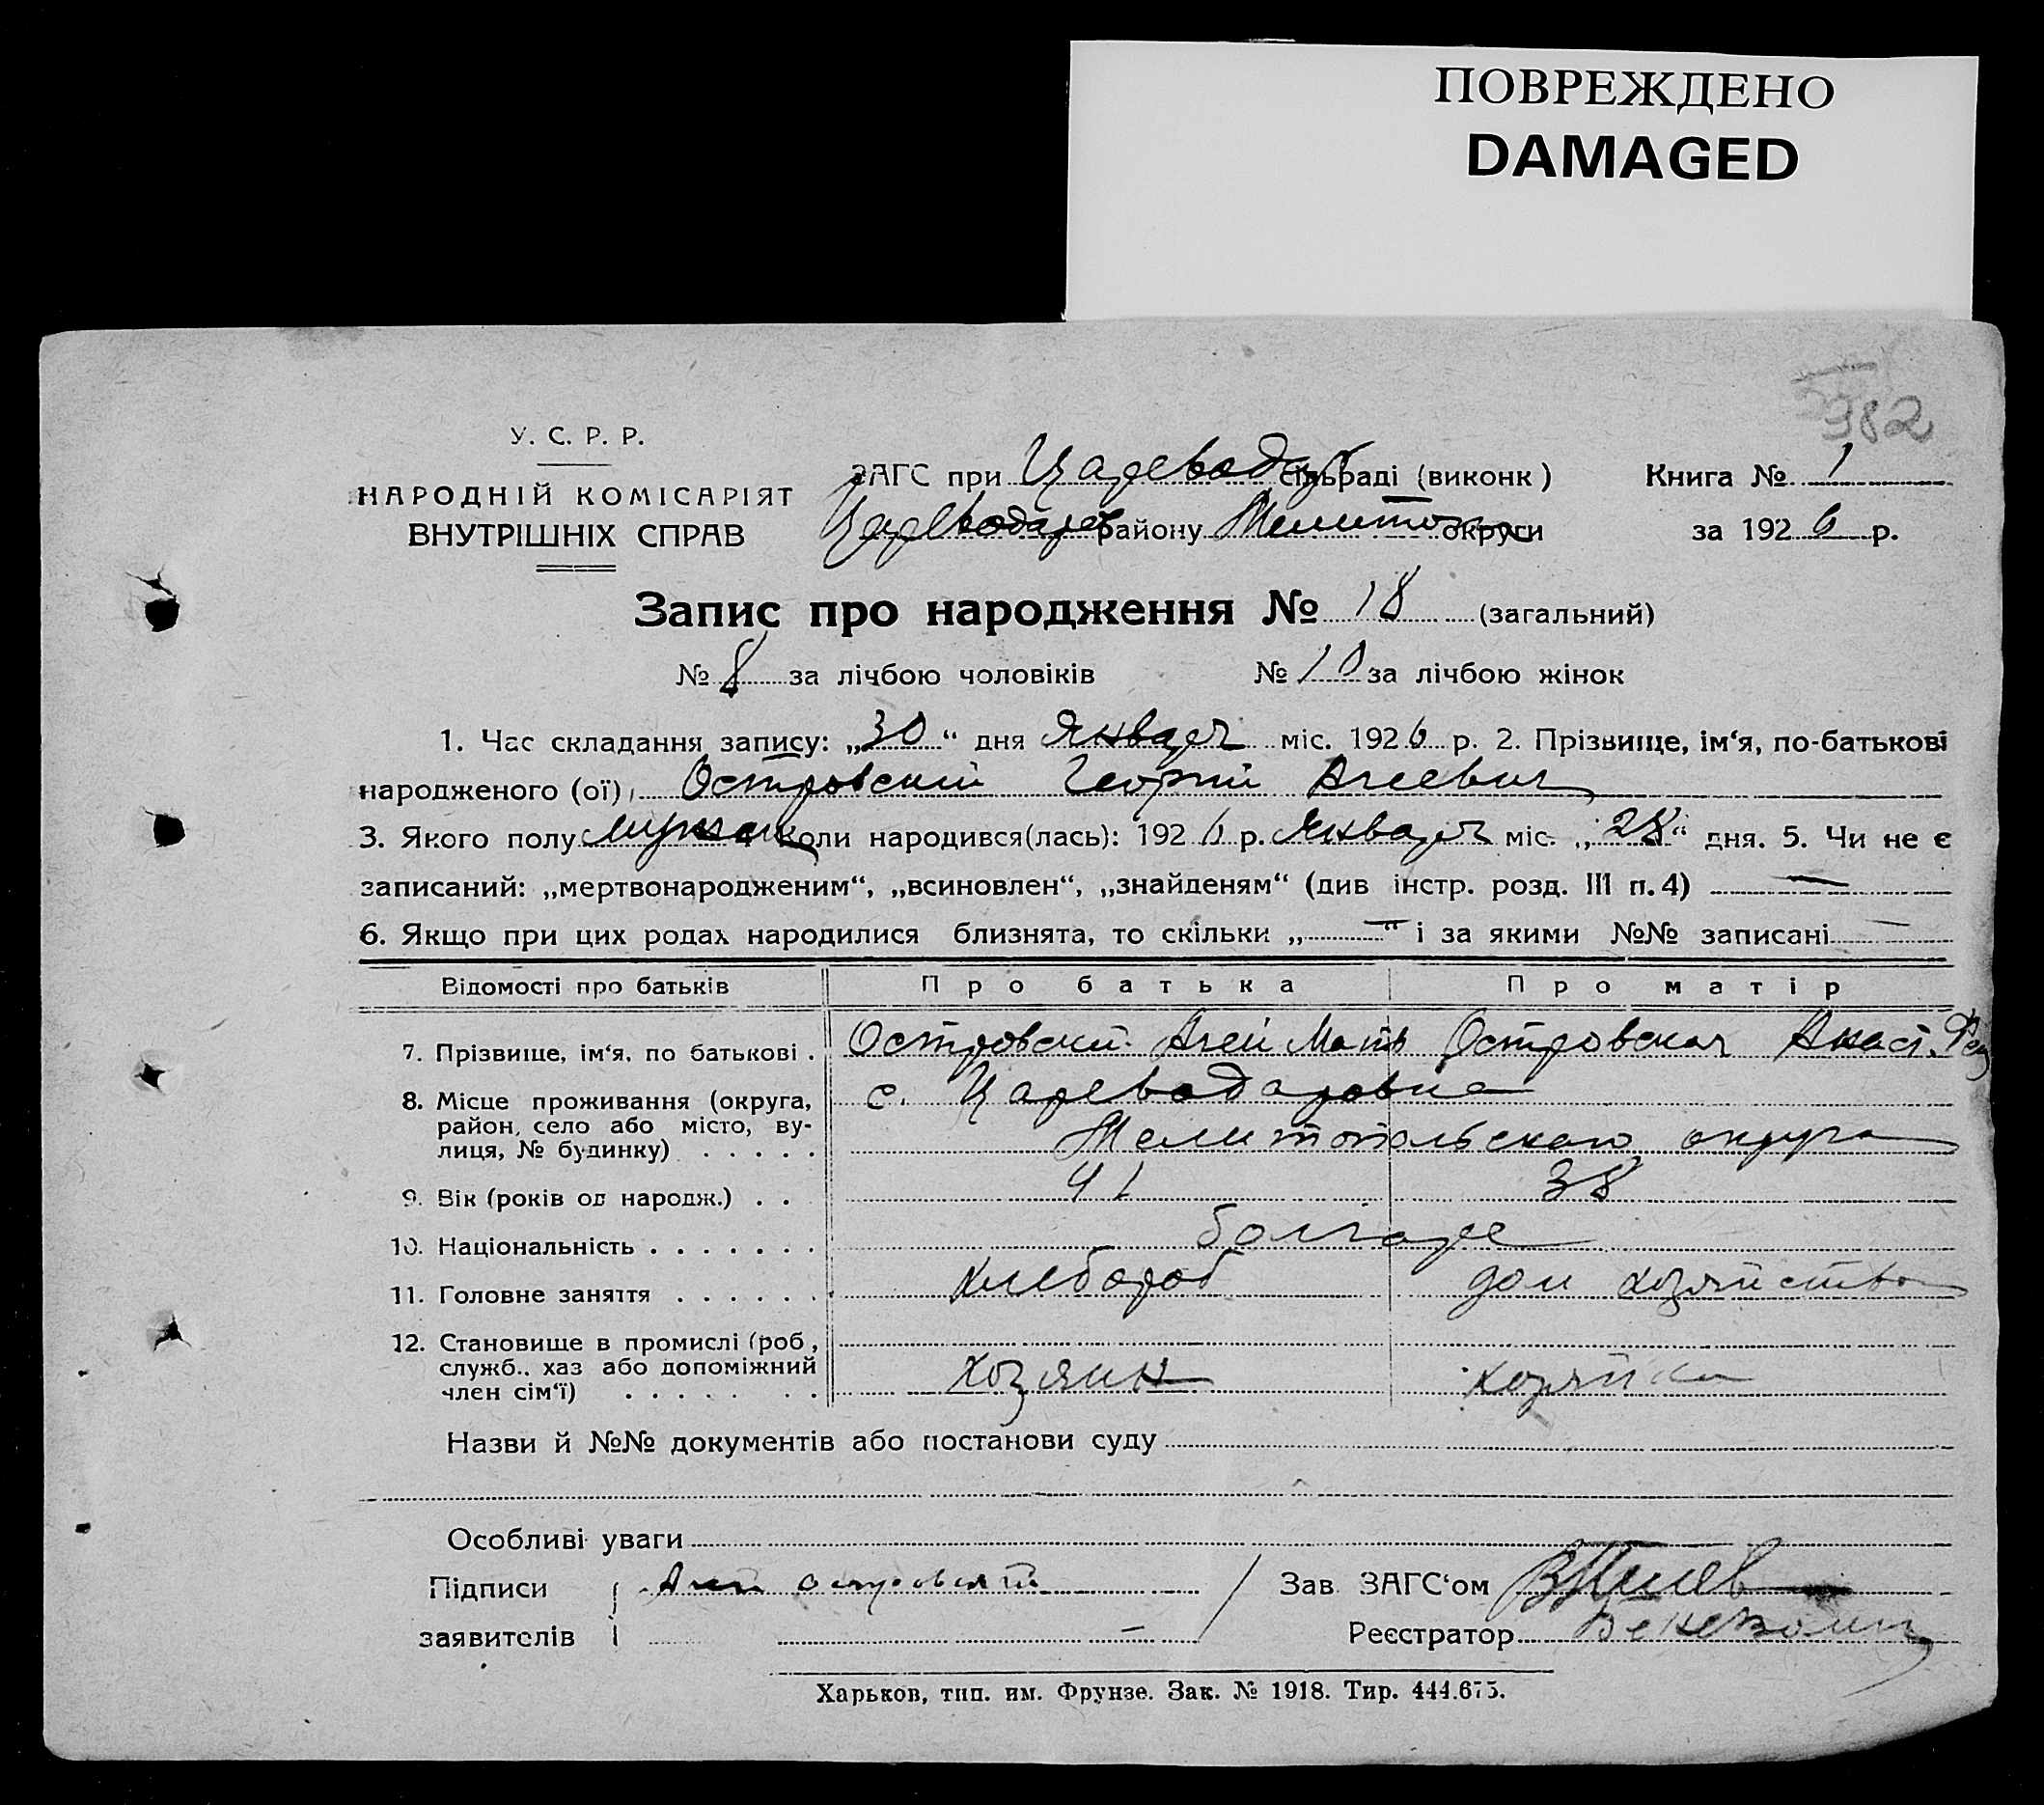 ПОВРЕЖДЕНО
DAMAGED
382
У. С. Р. Р.
НАРОДНІЙ КОМІСАРІЯТ
ВНУТРІШНІХ СПРАВ
ЗАГС при Цареводар сільраді (виконк) Книга № 1
Цареводаров району Мелитоп округи за 1926 р.
Запис про народження № 18 (загальний)
№ 8 за лічбою чоловіків № 10 за лічбою жінок
1. Час складання запису: „30“ дня Января міс. 1926 р. 2. Прізвище, ім‘я, по-батькові
народженого (ої) Островский Георгий Агеевич
3. Якого полу мужск 4 Коли народився(лась): 1926 р. Января міс. „28“ дня. 5. Чи не є
записаний: „мертвонародженим“, „всиновлен“, „знайденям“ (див інстр. розд. III п. 4) —
6. Якщо при цих родах народилися близнята, то скільки „—“ і за якими №№ записані —
Відомості про батьків Про батька Про матір
7. Прізвище, ім‘я, по батькові . Островский Агей Островская Анаст.
8. Місце проживання (округа, с. Цареводаровка
район, село або місто, ву-
лиця, № будинку) . . . . . Мелитопольского округа
9. Вік (років од народж.) . . 41 38
10. Національність . . . . . . . болгаре
11. Головне заняття . . . . . . хлебороб дом хозяйство
12. Становище в промислі (роб,
служб.. хаз або допоміжний хозяин хозяйка
член сім‘ї) . . . . . . . .
Назви й №№ документів або постанови суду
Особливі уваги
Підписи Агей островский Зав ЗАГС‘ом
заявителів — Реєстратор
Харьков, тип. им. Фрунзе. Зак. № 1918. Тир. 444.675.